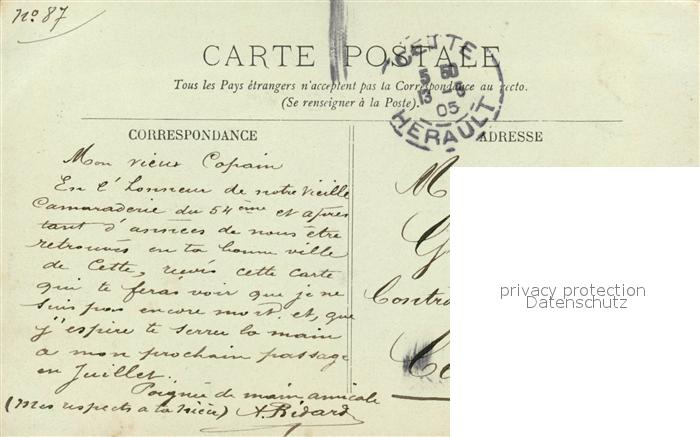 No 87
CARTE POSTALE
Tous les Pays étrangers n'acceptent pas la Correspondance au recto.
(Se renseigner à la Poste).
CETTE
5 50
13 -6
05
HERAULT
CORRESPONDANCE
Mon vieux Copain
En l'honneur de notre vieille
Camaraderie du 54ème et après
tant d'années de nous être
retrouvés en ta bonne ville
de Cette, reçois cette carte
qui te feras voir que je ne
suis pas encore mort et, que
j'espire te serrer la main
a mon prochain passage
en Juillet.
Poignée de main amicale
(Mes respects a ta nièce) A. Bédard
ADRESSE
M
G
Contrô
Ce
privacy protection
Datenschutz